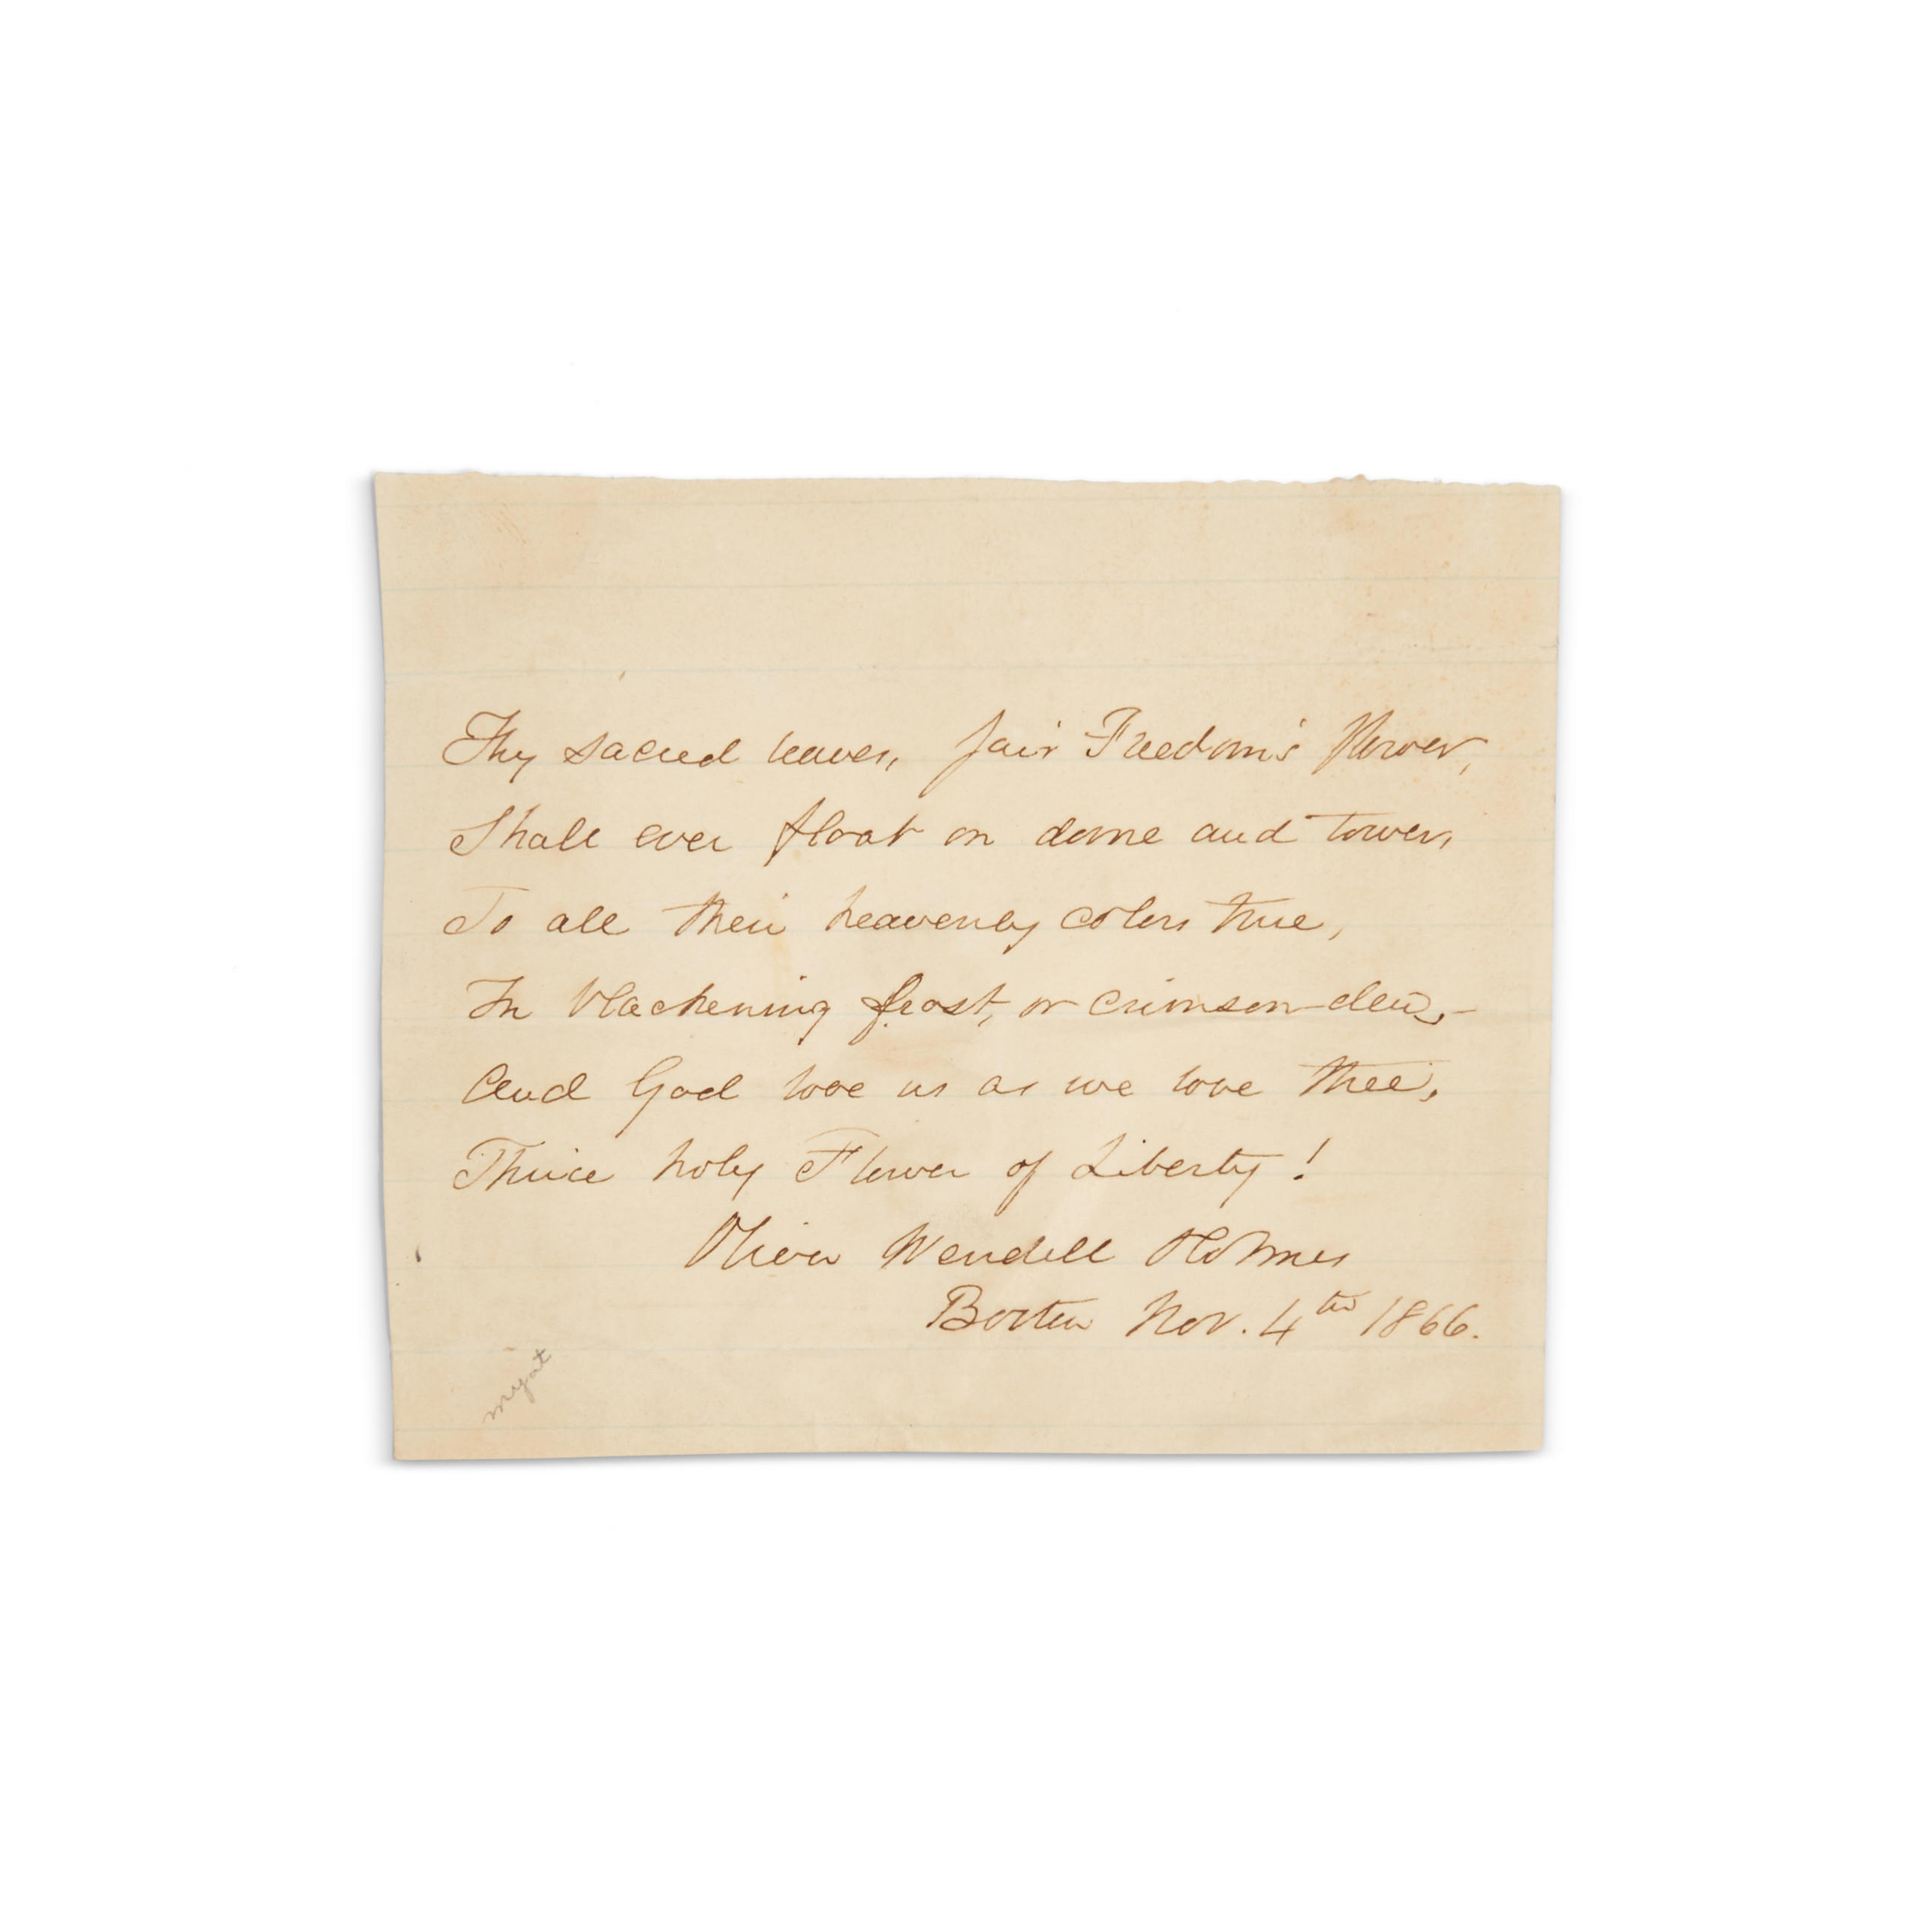 Thy sacred leaves, fair Freedom's flower,
Shall ever float on dome and tower,
To all their heavenly colors true,
In blackening frost, or crimson dew,—
And God love us as we love thee,
Thrice holy Flower of Liberty!
Oliver Wendell Holmes
Boston Nov. 4th 1866.